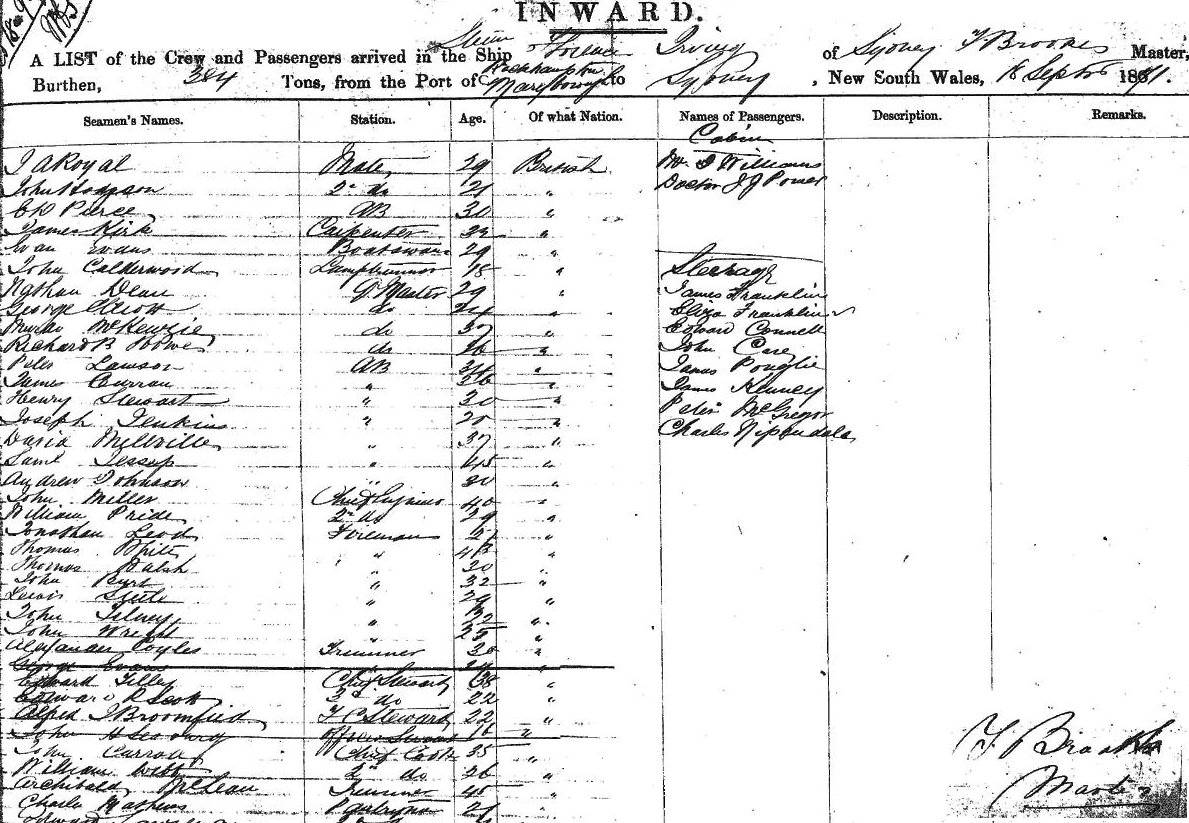 INWARD.
A LIST of the Crew and Passengers arrived in the Ship Florence Irving of Sydney F Brookes Master,
Burthen, 384 Tons, from the Port of Rockhampton Maryborough to Sydney, New South Wales, 18 Septr 1881.
Seamen's Names. Station. Age. Of what Nation. Names of Passengers. Description. Remarks.
Cabin
J A Royal Mate 29 British Mr J Williams
John Hodgson 2nd do 21 " Doctor J J Power
C D Pierce AB 30 "
James Kirk Carpenter "
Evan Evans Boatswain 29 "
John Calderwood Lamptrimmer 18 " Steerage
Nathan Dean Q Master 29 " James Franklin
George do 24 " Eliza Franklin
McKenzie do 37 " Edward Connell
Richard B do 26 " John Carey
Peter Lawson AB " James
James Curran " 26 " James Kenney
Henry Stewart " 30 " Peter McGregor
Joseph Jenkins " 20 " Charles
David Millville " 37 "
Saml Jessup " 45 "
Andrew Johnson " 30 "
John Miller Chief Engineer 40 "
William Pride 2nd do 29 "
Jonathan Fireman 27 "
Thomas White " 43 "
Thomas Walsh " 30 "
John " 32 "
Lewis " 29 "
John " "
John Wright " 25 "
Alexander Coyles Trimmer 30 "
George Evans
Edward Tilley Chief Steward 38 "
Edward R Scott 2nd do 22 "
Alfred J Broomfield F C Steward 22 "
John 16 "
John Carroll Chief Cook 35 "
William Webb 2nd do 26 "
Archibald McLean Trimmer 45 "
Charles Mathews Pantryman 21 "
F Brookes
Master